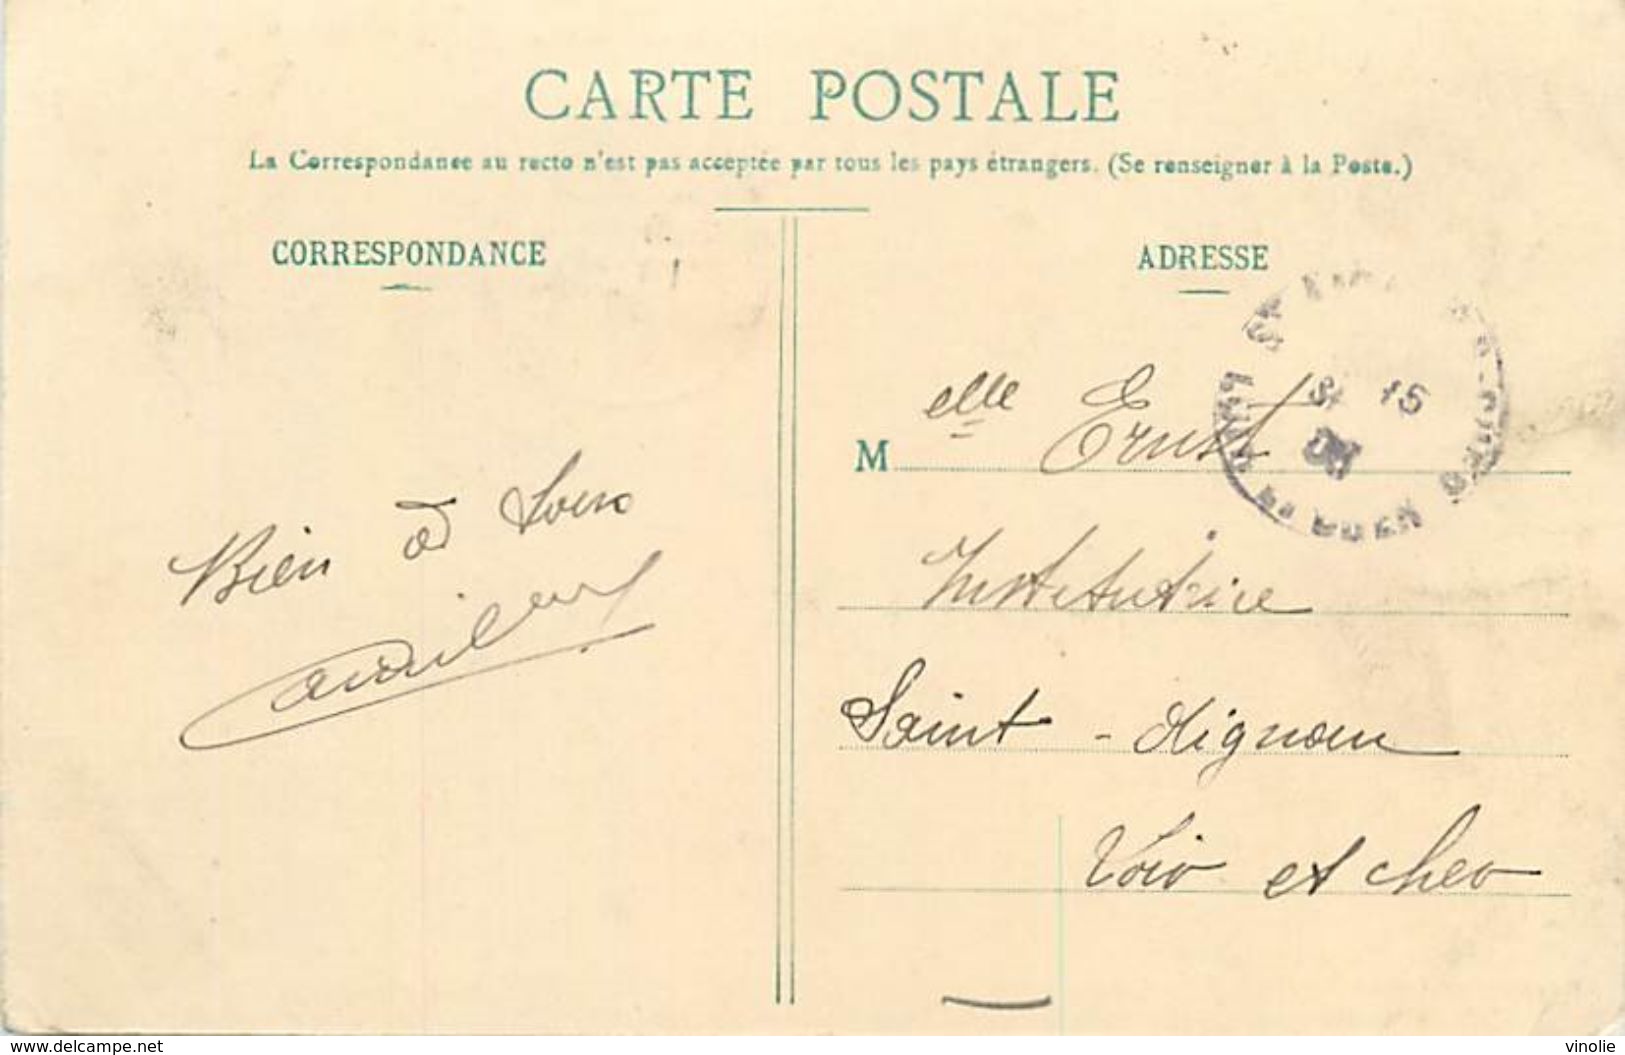 CARTE POSTALE
La Correspondance au recto n'est pas acceptée par tous les pays étrangers. (Se renseigner à la Poste.)
CORRESPONDANCE
ADRESSE
Bien à
M elle Ernst
Institutrice
Saint-Aignan
Loir et cher
15
www.delcampe.net
vinolie